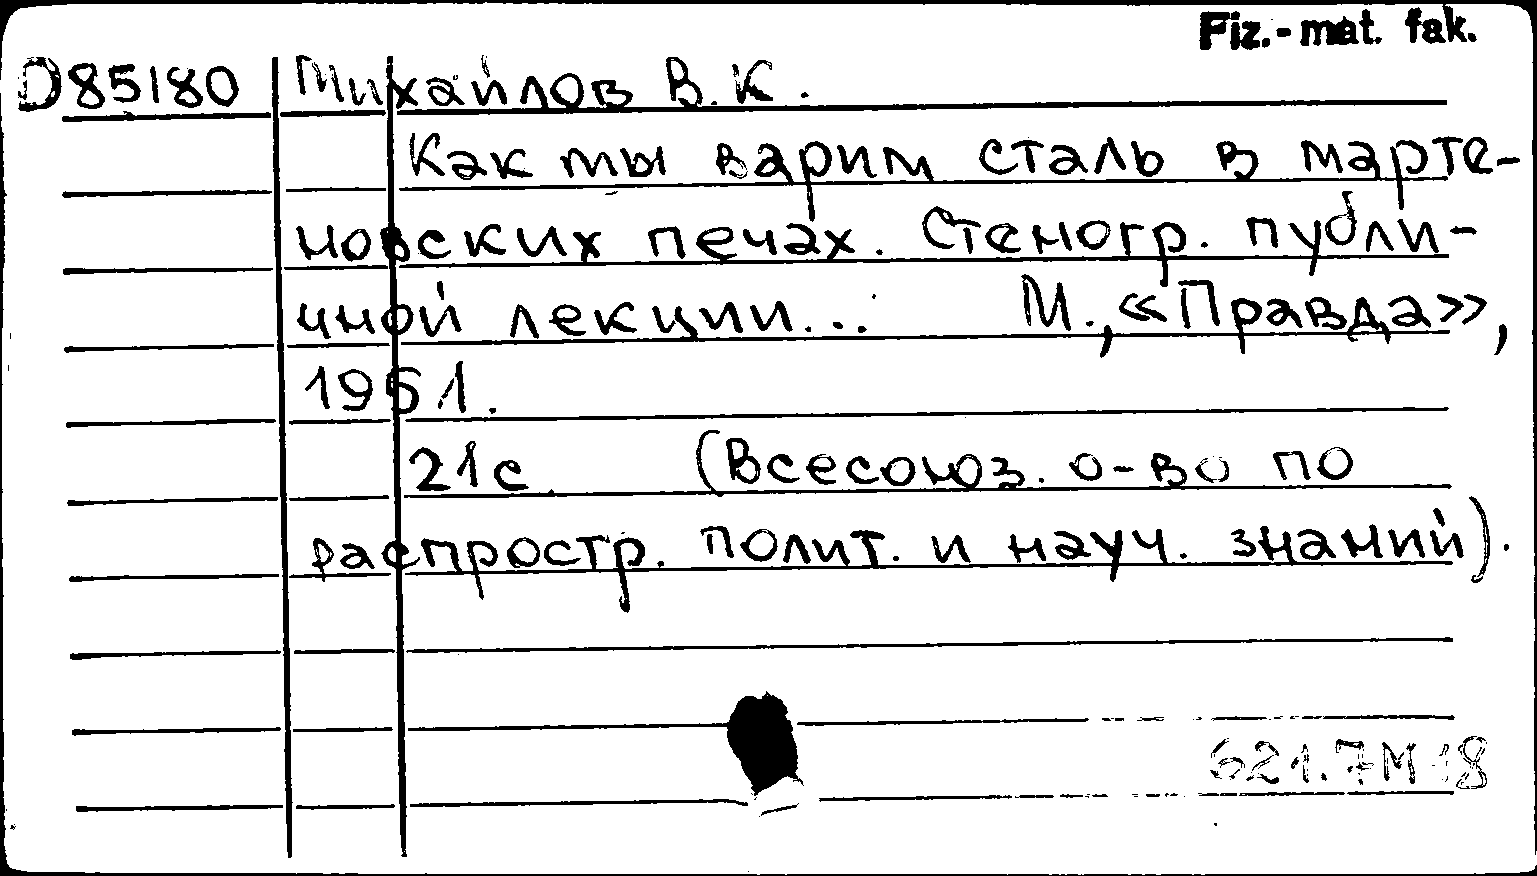 Fiz.-mat. fak.
D85180 Михайлов В.К.
Как мы варим сталь в марте-
новских печах. Стеногр. публи-
чной лекции... М., «Правда»,
1951.
21с. (Всесоюз. о-во по
распростр. полит. и науч. знаний).
621.7 М 18